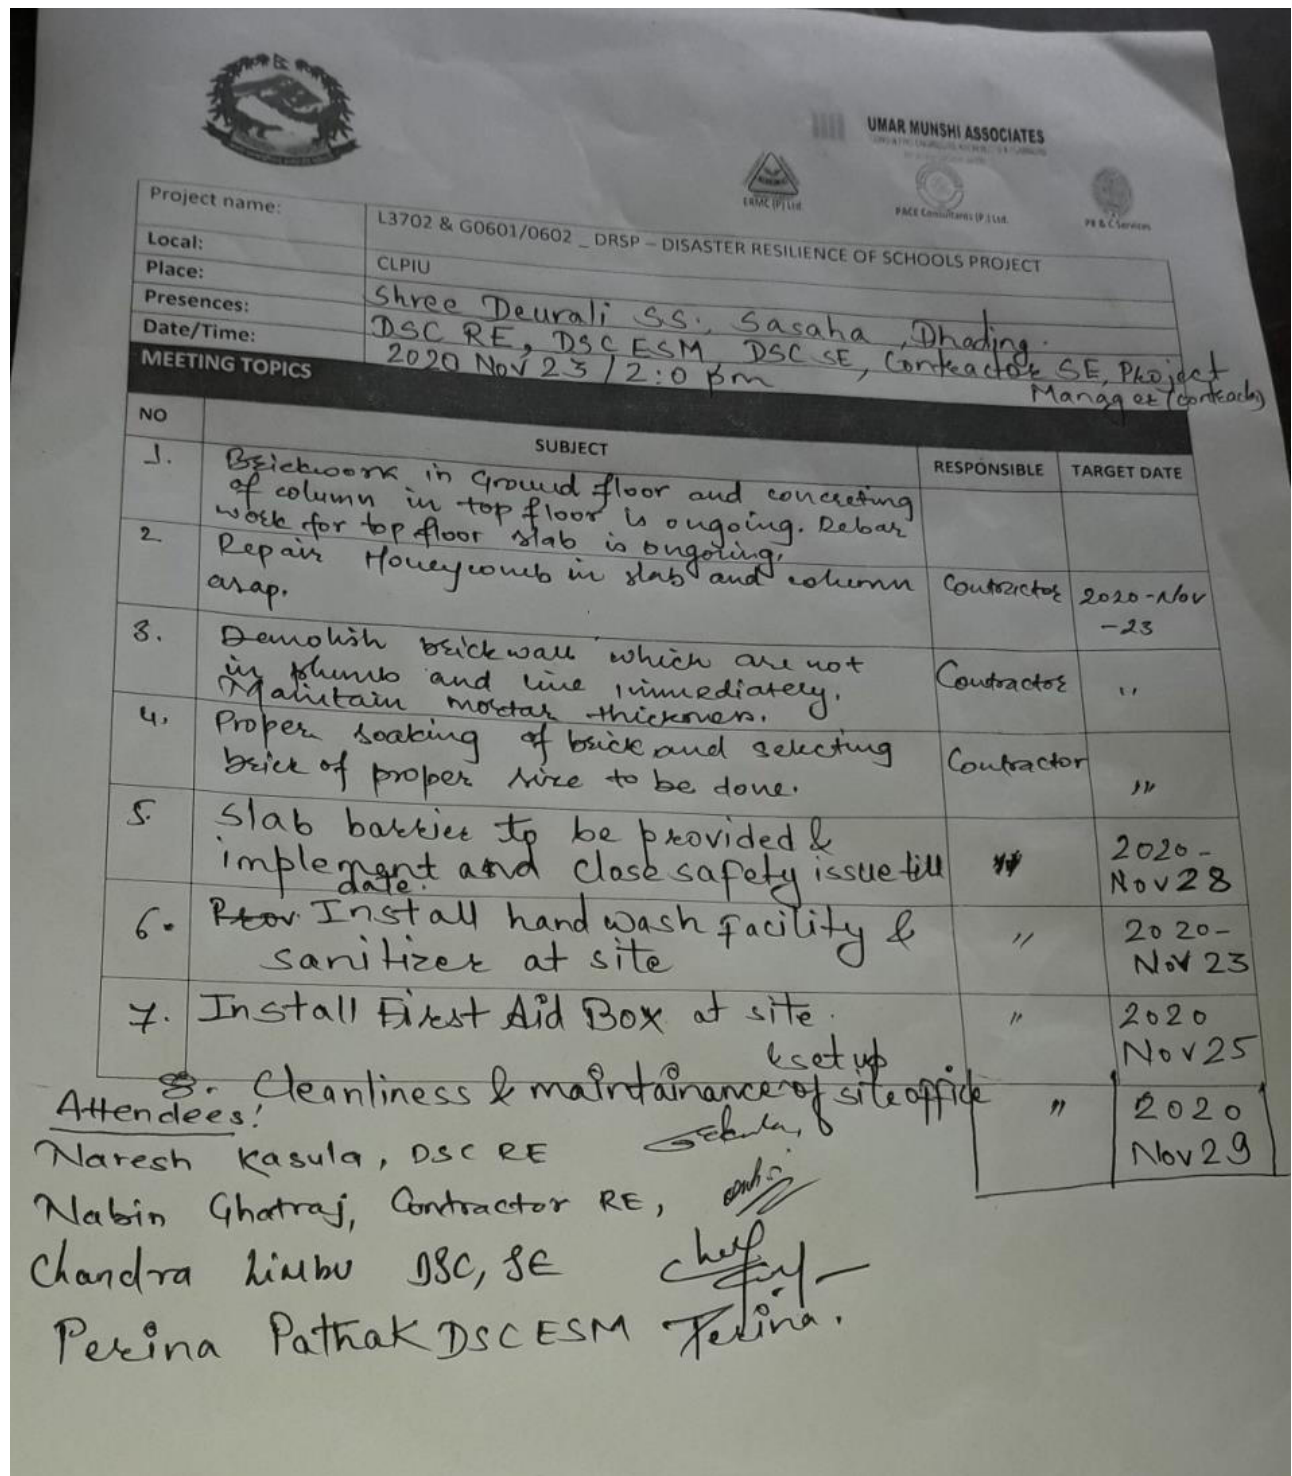 UMAR MUNSHI ASSOCIATES
ERMC (P) Ltd.
PACE Consultants (P.) Ltd.
PR & C Services
Project name: L3702 & G0601/0602 _ DRSP – DISASTER RESILIENCE OF SCHOOLS PROJECT
Local: CLPIU
Place: Shree Deurali SS., Sasaha, Dhading.
Presences: DSC RE, DSC ESM, DSC SE, Contractor SE, Project
Manager (Contractor)
Date/Time: 2020 Nov 23 / 2:0 pm
MEETING TOPICS
NO SUBJECT RESPONSIBLE TARGET DATE
1. Brickwork in Ground floor and concreting
of column in top floor is ongoing. Rebar
work for top floor slab is ongoing.
2 Repair Honeycomb in slab and column Contractor 2020-Nov
asap. -23
3. Demolish brickwall which are not
in plumb and line immediately. Contractor "
Maintain mortar thickness.
4. Proper soaking of brick and selecting Contractor
brick of proper size to be done. "
5. Slab barrier to be provided & 2020-
implement and close safety issue till " Nov 28
date.
6. Prov Install hand wash facility & " 2020-
sanitizer at site Nov 23
7. Install First Aid Box at site. " 2020
Nov 25
& set up
8. Cleanliness & maintainance of site office " 2020
Nov 29
Attendees!
Naresh Kasula, DSC RE
Nabin Ghatraj, Contractor RE,
Chandra Limbu DSC, SE
Perina Pathak DSC ESM Perina.